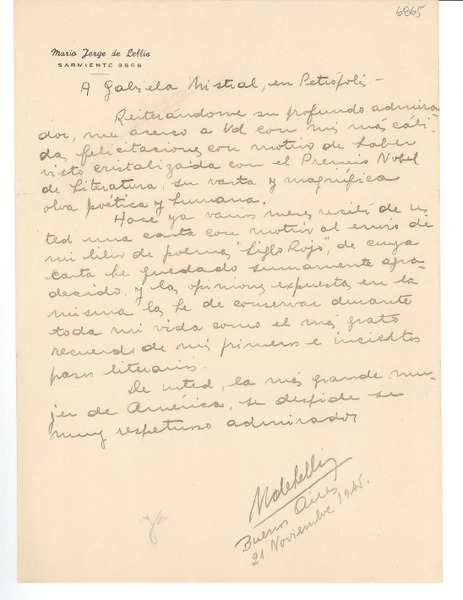 6865
Mario Jorge de Lellis
SARMIENTO 3868
A Gabriela Mistral, en Petrópolis -
Reiterándome su profundo admira-
dor, me acerco a Ud con mis más cáli-
das felicitaciones con motivo de haber
visto cristalizada con el Premio Nobel
de Literatura, su vasta y magnífica
obra poética y humana.
Hace ya varios meses recibí de us-
ted una carta con motivo al envío de
mi libro de poemas "Siglo Rojo", de cuya
carta he quedado sumamente agra-
decido, y las opiniones expuestas en la
misma las he de conservar durante
toda mi vida como el más grato
recuerdo de mis primeros e inciertos
pasos literarios.
De usted, la más grande mu-
jer de América, se despide su
muy respetuoso admirador
MdeLellis
Buenos Aires
21 Noviembre 1945.